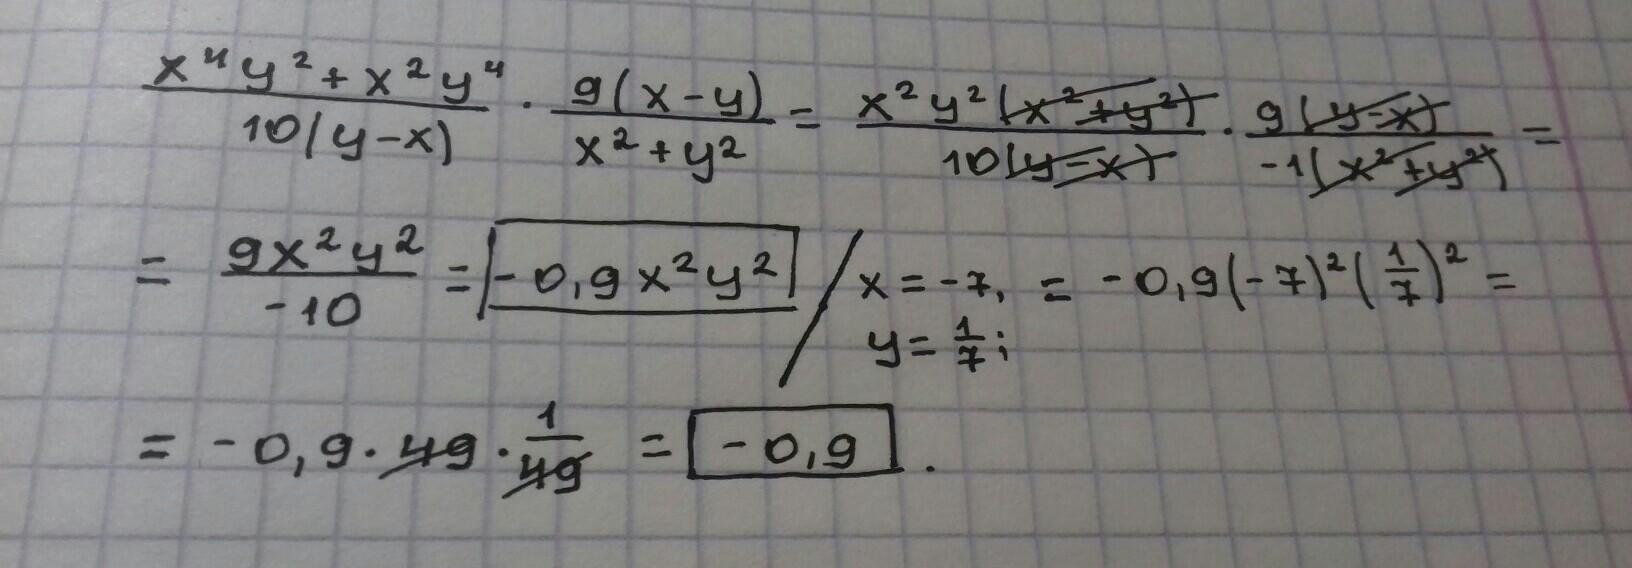 (x⁴y² + x²y⁴)/(10(y-x)) · (9(x-y))/(x²+y²) = (x²y²(x²+y²))/(10(y-x)) · (9(y-x))/(-1(x²+y²)) =
= (9x²y²)/(-10) = -0,9x²y² / x = -7, y = 1/7; = -0,9(-7)²(1/7)² =
= -0,9 · 49 · 1/49 = -0,9.